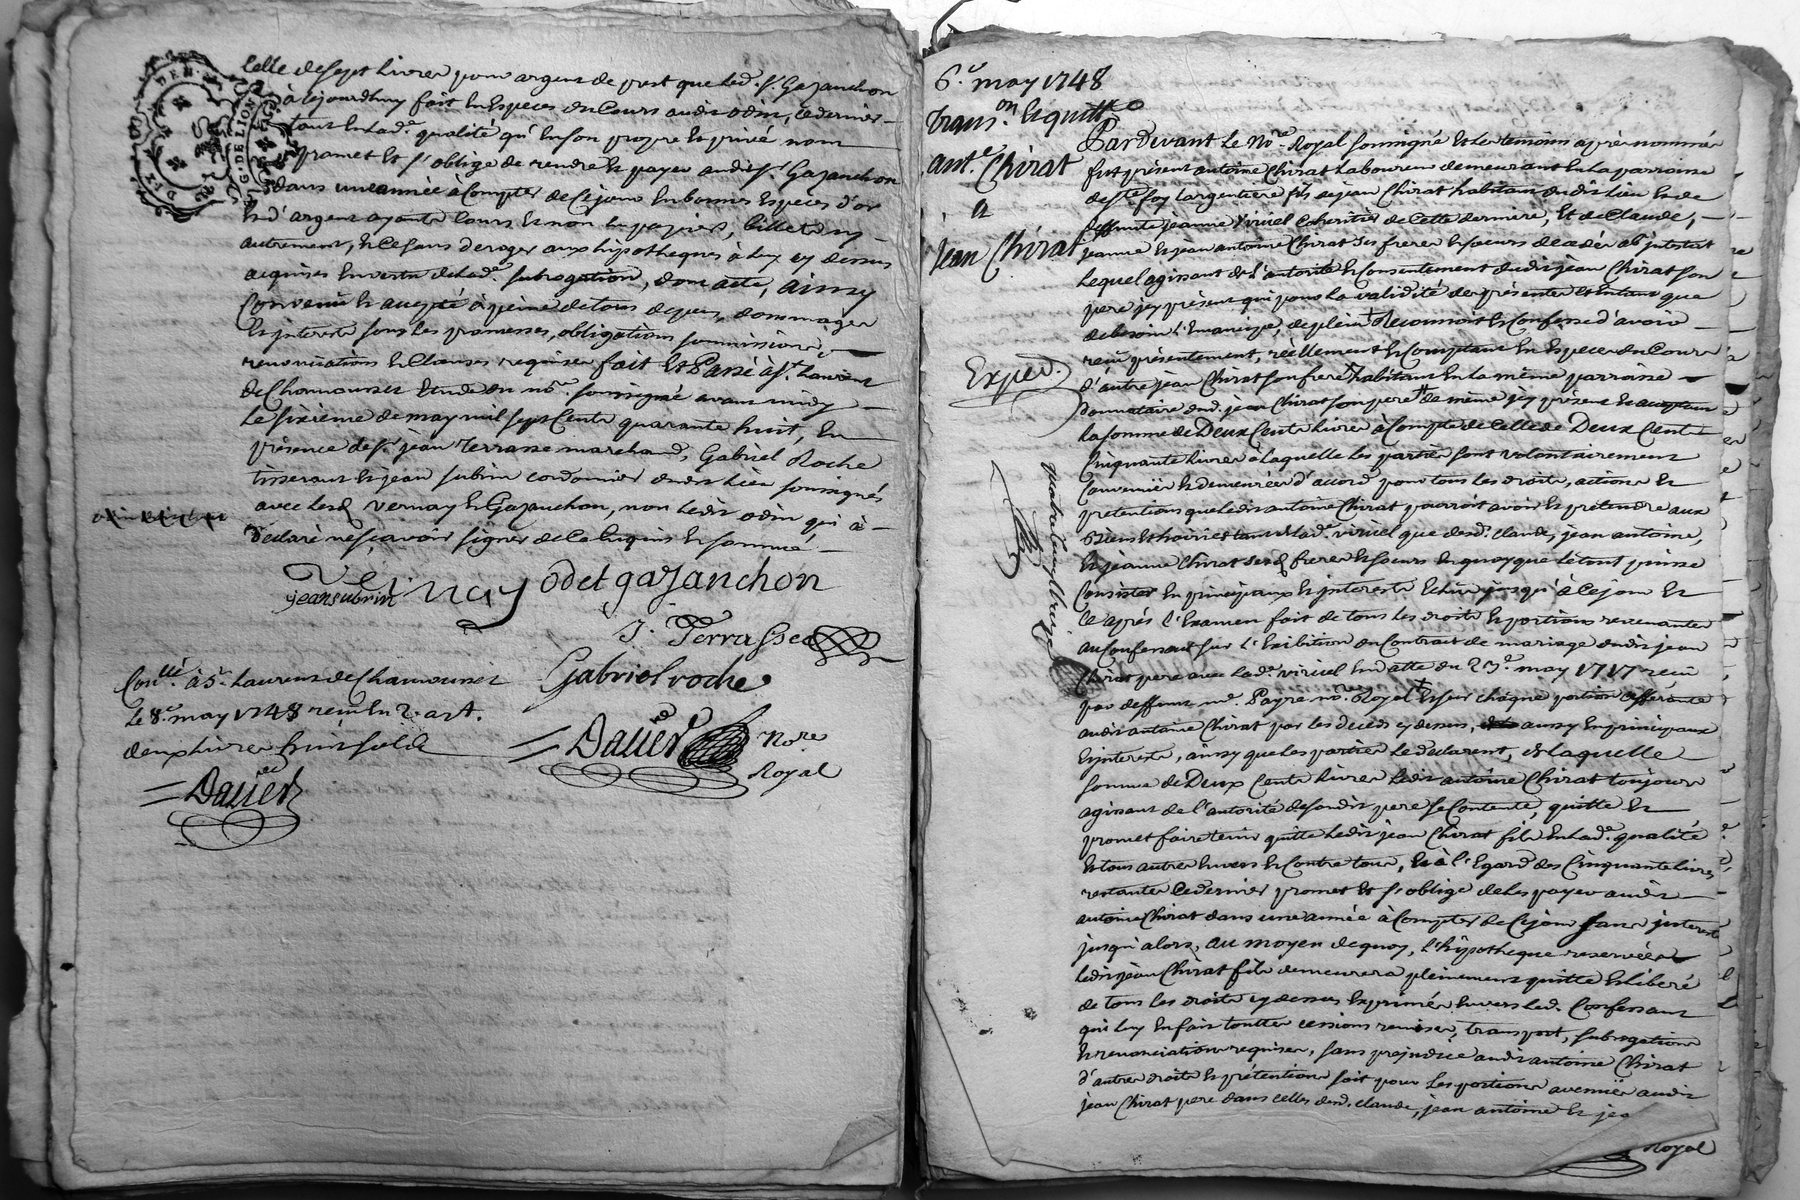 Celle de sept livres pour argent de prest que led. sr. Gazanchon
a cejourdhuy fait en especes du cours audit odin, ce dernier
tant en lad.e qualité qu'en son propre et privé nom
promet et s'oblige de rendre et payer audit sr. Gazanchon
dans une année à compter de ce jour en bonnes especes d'or
et d'argent ayants cours et non en papiers, billets ny
autrement, et ce sans deroger aux hypotheques à luy cy dessus
acquises en vertu de lad.e subrogation, dont acte, ainsy
convenu et accepté à peine de tous depens, dommages
et interests sous les promesses, obligations soummissions,
renonciations et clauses requises fait et Passé à st. Laurent
de Chamousset Etude du no.re soussigné avant midy
le sixieme de may mil sept cents quarante huit, En
présence de sr. jean Terrasse marchand, Gabriel Roche
tisserant et jean subrin cordonnier dudit lieu soussignés
avec lesd. Vernay et Gazanchon, non ledit odin qui a
declaré ne sçavoir signer de ce enquis et sommé
Vernay odet gazanchon
jean subrin
J. Terrasse
Gabriel roche
Con.llé à St. Laurent de Chamousset
le 8.e may 1748 reçu en 2. art.
deux livres huit sols
Dauer
Dauer No.re
Royal
6.e may 1748
Trans.on Et quitt.e
ant.e Chirat
a
Jean Chirat
Exped.
Pardevant le No.re Royal soussigné et les temoins après nommés
fut présent antoine Chirat laboureur demeurant en la parroisse
de ste foy largentiere fils de jean Chirat habitant dudit lieu et de
deffunte jeanne Viriel coheritier de cette derniere, et de Claude,
jeanne et jean antoine Chirat ses freres et soeurs decedés ab intestat
lequel agissant de l'autorité et consentement dudit jean Chirat son
pere icy présent qui pour la validité des présentes et entant que
de besoin l'Emancipe, de plein reconnoit et confesse d'avoir
reçu présentement, réellement et comptant en especes du cours
d'autre jean Chirat son frere habitant en la même parroisse
donnataire dud. jean Chirat son pere de même icy présent et acceptant
la somme de Deux Cents livres à compte de celle de Deux Cents
Cinquante livres à laquelle les parties sont volontairement
convenües et demeurées d'accord pour tous les droits, actions et
pretentions que ledit antoine Chirat pourroit avoir et prétendre aux
biens et hoiries tant de lad.e viriel que desd. claude, jean antoine,
et jeanne Chirat sesd. freres et soeurs en quoy que le tout puisse
consister en principaux et interests echus jusqu'à ce jour et
ce après l'Examen fait de tous les droits et portions revenantes
au Confessant sur l'Exibition du Contrat de mariage dudit jean
Chirat pere avec lad.e viriel en datte du 23.e may 1717 reçu
par deffunt m.e Payre no.re Royal et sur chaque portion afferante
audit antoine Chirat par les decéds cy dessus, aussy en principaux
et interests, ainsy que les parties le declarent, de laquelle
somme de Deux Cents livres ledit antoine Chirat toujours
agissant de l'autorité de sondit pere se Contente, quitte et
promet faire tenir quitte ledit jean Chirat fils en lad.e qualité
et tous autres envers et contre tous, et à l'Egard des Cinquante livres
restantes ce dernier promet et s'oblige de les payer audit
antoine Chirat dans une année à compter de ce jour sans interests
jusqu'alors, au moyen de quoy, l'hypotheque reservée,
ledit jean Chirat fils demeurera pleinement quitte et liberé
de tous les droits cy dessus Exprimés envers led. Confessant
qui luy en fait touttes cessions remises, transport, subrogation
et renonciation requises, sans préjudice audit antoine Chirat
d'autres droits et prétentions soit pour les portions avenües audit
jean Chirat pere dans celles desd. claude, jean antoine et jea
Royal